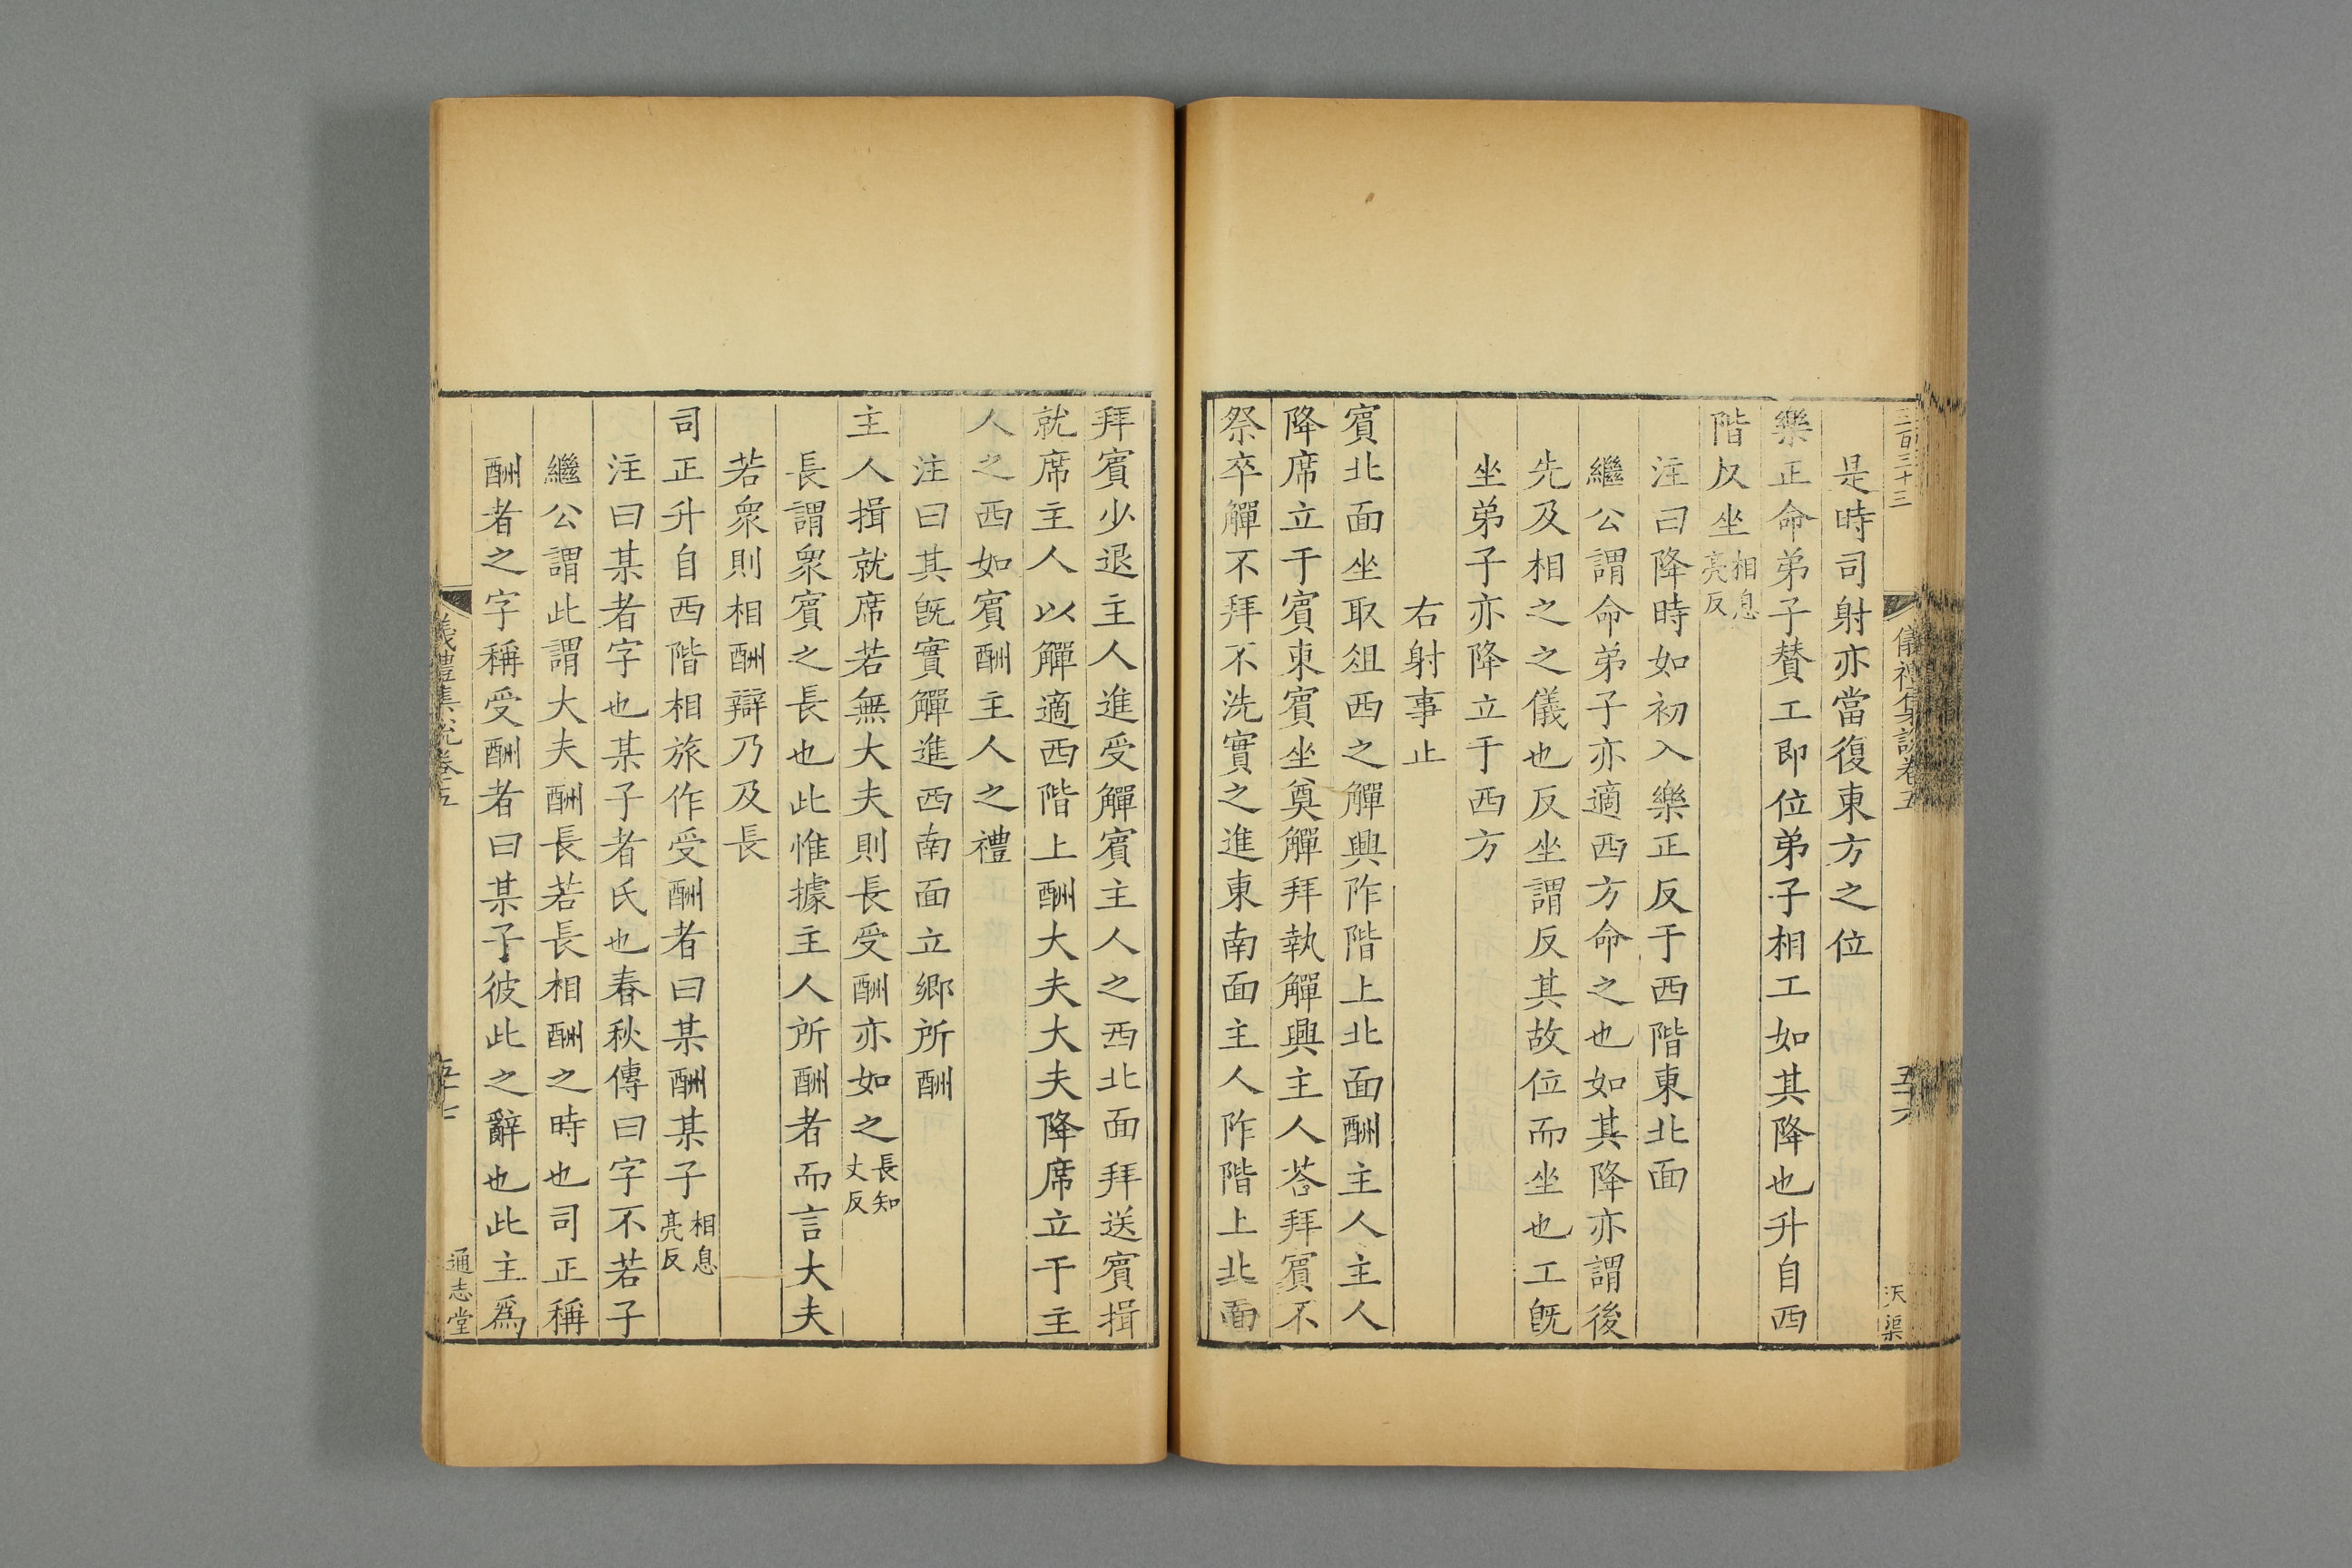 三百三十三
儀禮集說卷五
五十六
天渠
是時司射亦當復東方之位
樂正命弟子贊工即位弟子相工如其降也升自西
階反坐相息亮反
注曰降時如初入樂正反于西階東北面
繼公謂命弟子亦適西方命之也如其降亦謂後
先及相之之儀也反坐謂反其故位而坐也工旣
坐弟子亦降立于西方
右射事止
賓北面坐取俎西之觶興阼階上北面酬主人主人
降席立于賓東賓坐奠觶拜執觶興主人荅拜賓不
祭卒觶不拜不洗實之進東南面主人阼階上北面
拜賓少退主人進受觶賓主人之西北面拜送賓揖
就席主人以觶適西階上酬大夫大夫降席立于主
人之西如賓酬主人之禮
注曰其旣實觶進西南面立鄉所酬
主人揖就席若無大夫則長受酬亦如之長知丈反
長謂衆賓之長也此惟據主人所酬者而言大夫
若衆則相酬辯乃及長
司正升自西階相旅作受酬者曰某酬某子相息亮反
注曰某者字也某子者氏也春秋傳曰字不若子
繼公謂此謂大夫酬長若長相酬之時也司正稱
酬者之字稱受酬者曰某子彼此之辭也此主爲
儀禮集說卷五
五十七
通志堂